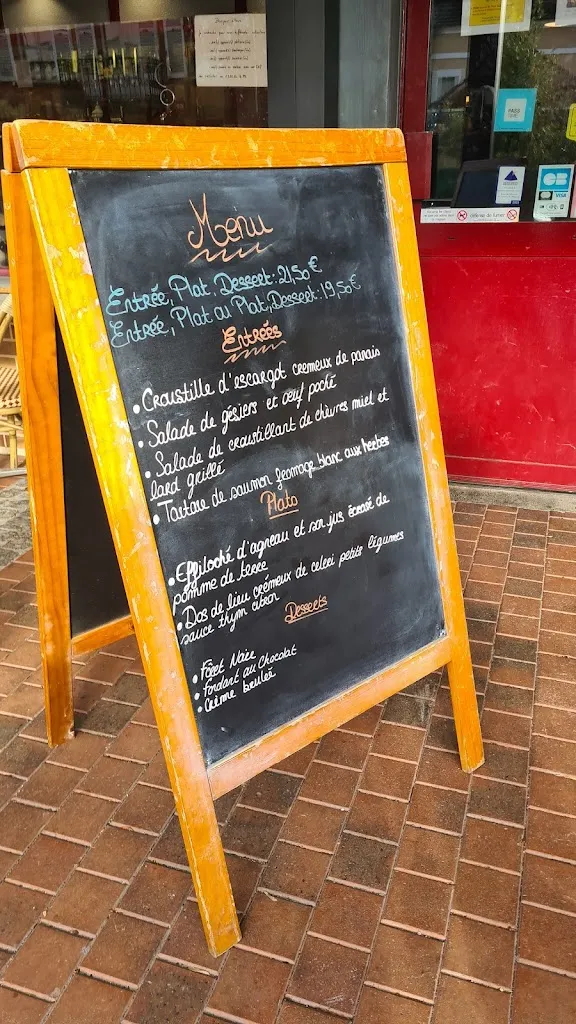 Menu
Entrée, Plat, Dessert: 21,50€
Entrée, Plat ou Plat, Dessert: 19,50€
Entrées
• Croustille d'escargot cremeux de panais
• Salade de gésiers et oeuf poché
• Salade de croustillant de chèvres miel et
lard grillé
• Tartare de saumon fromage blanc aux herbes
Plats
• Effiloché d'agneau et son jus écrasé de
pomme de terre
• Dos de lieu crémeux de celeri petits légumes
sauce thym citron
Desserts
• Fôret Noire
• Fondant au Chocolat
• Crème bruleé
PASS
défense de fumer
CB
VISA